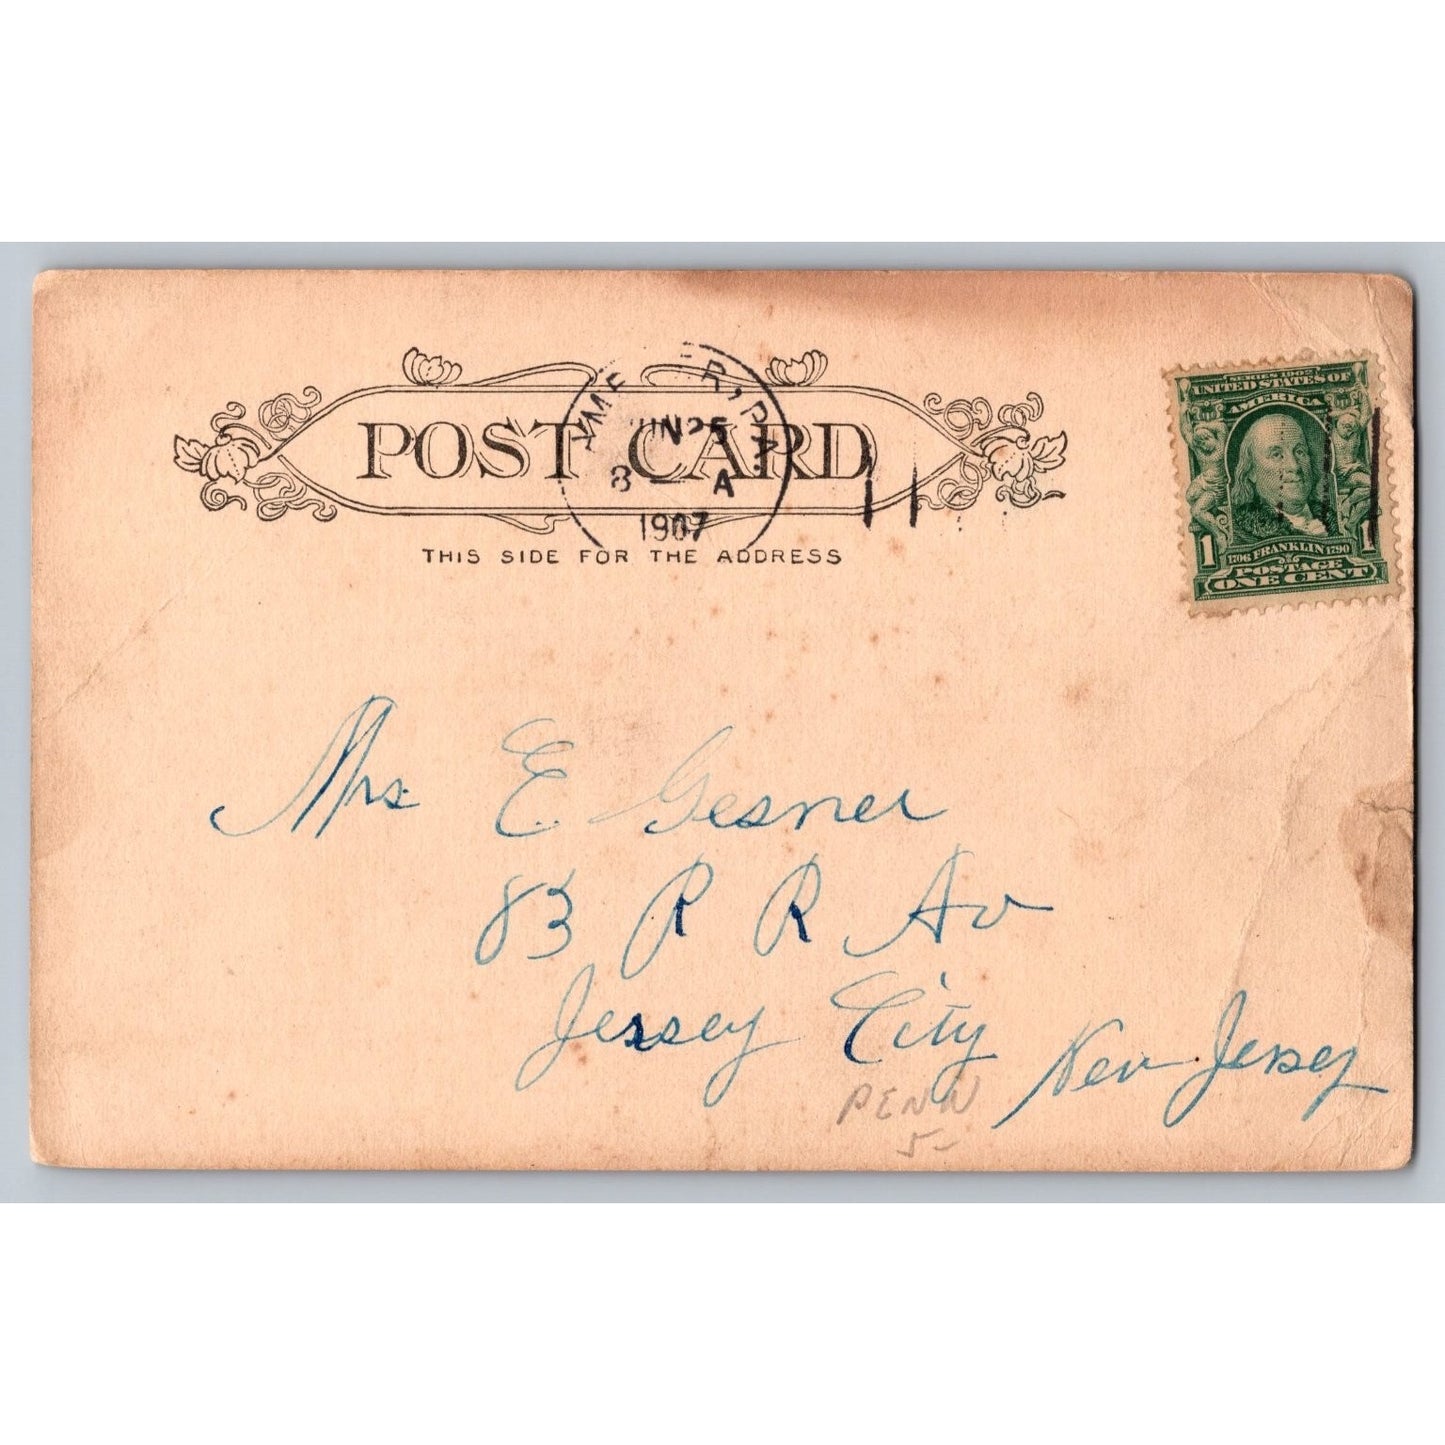 POST CARD
JUN 25
8 A
1907
THIS SIDE FOR THE ADDRESS
SERIES 1902
UNITED STATES OF
AMERICA
1 1
1706 FRANKLIN 1790
POSTAGE
ONE CENT
Mrs E Gesner
83 R R Av
Jersey City New Jersey
PENN
5-